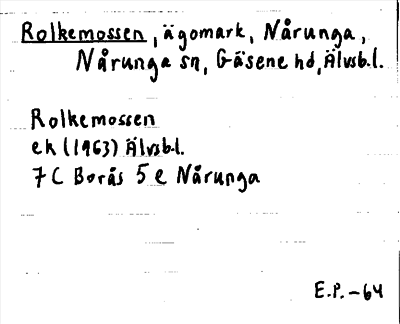 Rolkemossen, ägomark, Nårunga,
Nårunga sn, Gäsene hd, Älvsb.l.
Rolkemossen
ek (1963) Älvsb.l.
7C Borås 5 e Nårunga
E.P. -64